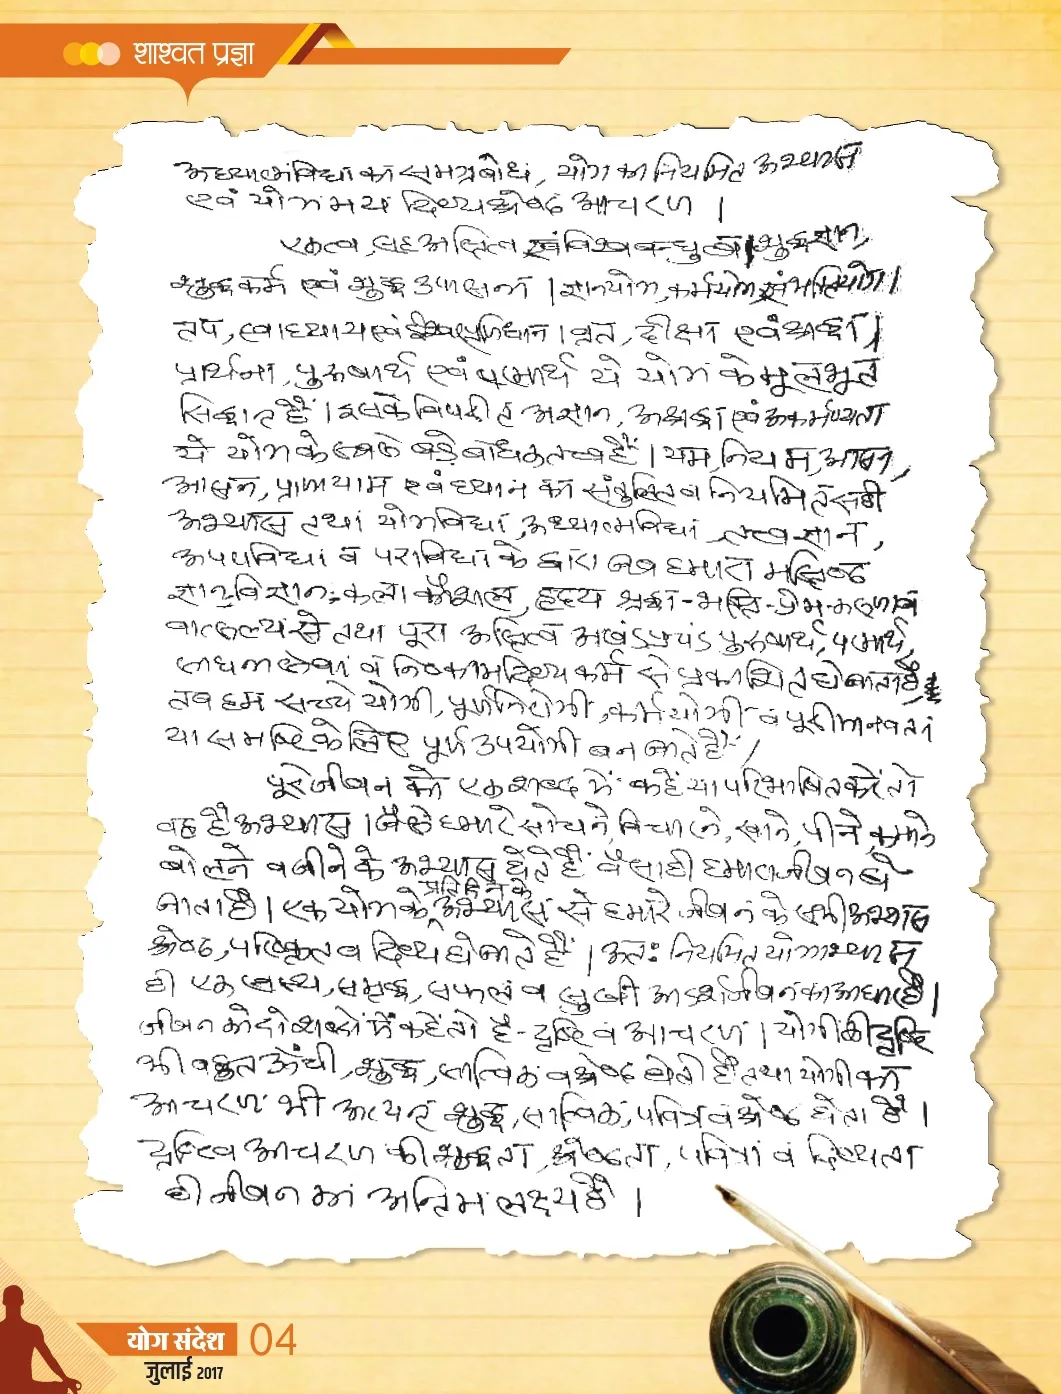 शाश्वत प्रज्ञा
अध्यात्मविद्या का समग्रबोध, योग का नियमित अभ्यास
एवं योगमय दिव्य श्रेष्ठ आचरण ।
एकत्व, सह अस्तित्व एवं विश्वबन्धुत्व। शुद्ध ज्ञान,
शुद्ध कर्म एवं शुद्ध उपासना । ज्ञानयोग, कर्मयोग एवं भक्तियोग।
तप, स्वाध्याय एवं ईश्वरप्रणिधान । व्रत, दीक्षा एवं श्रद्धा।
प्रार्थना, पुरुषार्थ एवं परमार्थ ये योग के मूलभूत
सिद्धान्त हैं । इसके विपरीत अज्ञान, अश्रद्धा एवं अकर्मण्यता
ये योग के सबसे बड़े बाधक तत्त्व हैं । यम, नियम, आसन,
आसन, प्राणायाम एवं ध्यान का संतुलित व नियमित सही
अभ्यास तथा योगविद्या, अध्यात्मविद्या, तत्त्वज्ञान,
अपराविद्या व पराविद्या के द्वारा जब हमारा मस्तिष्क
ज्ञान-विज्ञान, कला कौशल, हृदय श्रद्धा-भक्ति-प्रेम-करुणा व
वात्सल्य से तथा पूरा अस्तित्व अखंड प्रचंड पुरुषार्थ, परमार्थ,
साधना सेवा व निष्काम दिव्य कर्म से प्रकाशित हो जाता है,
तब हम सच्चे योगी, पूर्ण निरोगी, कर्मयोगी व पूरी मानवता
या समष्टि के लिए पूर्ण उपयोगी बन जाते हैं ।
पूरे जीवन को एक शब्द में कहें या परिभाषित करें तो
वह है अभ्यास । जैसे हमारे सोचने, विचारने, खाने, पीने, कमाने
बोलने व जीने के अभ्यास होते हैं वैसा ही हमारा जीवन हो
जाता है । एक योग के प्रतिदिन के अभ्यास से हमारे जीवन के सभी अभ्यास
श्रेष्ठ, परिष्कृत व दिव्य हो जाते हैं । अतः नियमित योगाभ्यास
ही एक स्वस्थ, समृद्ध, सफल व सुखी आदर्श जीवन का आधार है।
जीवन को दो शब्दों में कहें तो है - दृष्टि व आचरण । योगी की दृष्टि
भी बहुत ऊँची, शुद्ध, सात्विक व श्रेष्ठ होती है तथा योगी का
आचरण भी अत्यन्त शुद्ध, सात्विक, पवित्र व श्रेष्ठ होता है ।
दृष्टि व आचरण की शुद्धता, श्रेष्ठता, पवित्रता व दिव्यता
ही जीवन का अन्तिम लक्ष्य है ।
योग संदेश 04
जुलाई 2017